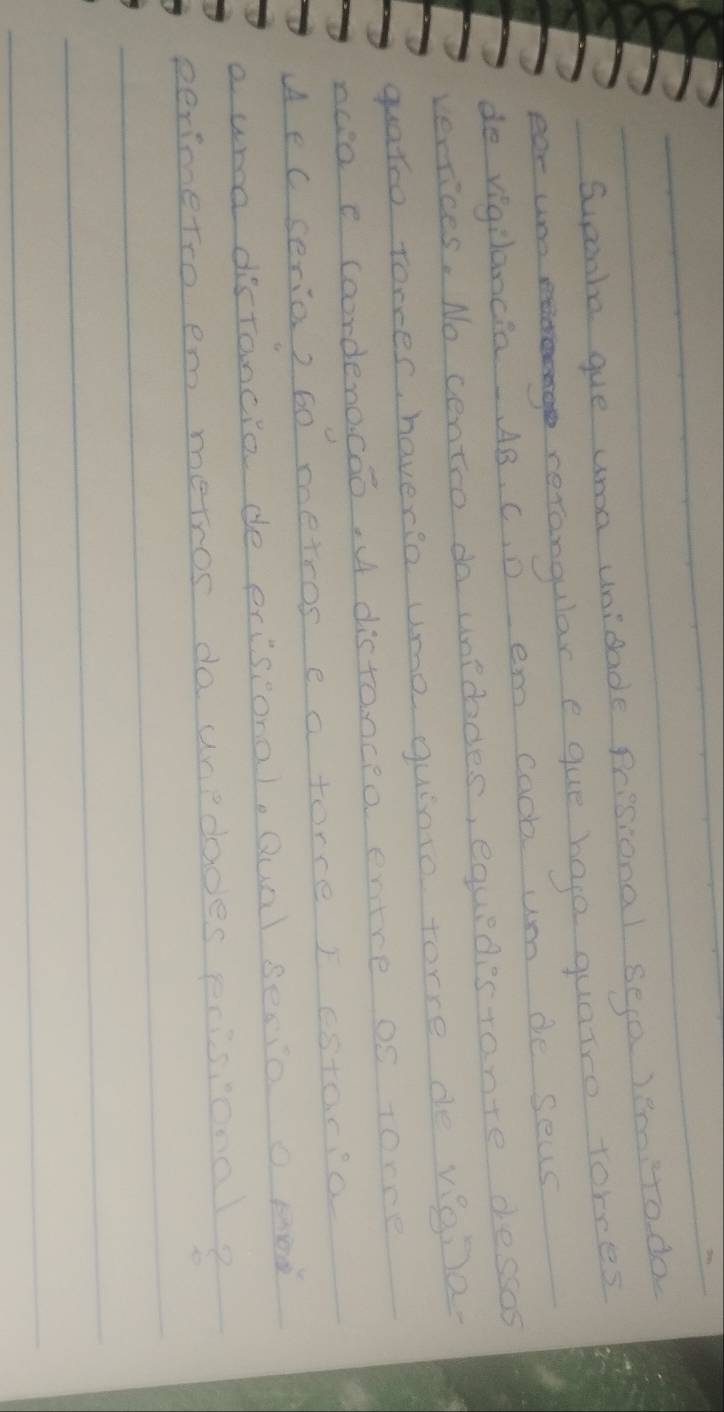 Suponha que uma unidade Prisional seja limitada
por um retangular e que haja quatro torres
de vigilancia - AB, C, D - em cada um de seus
vertices. No centro da unidades, equidistante dessas
quatro torres, haveria uma quinta torre de vigila-
ncia e coordenação. A distancia entre as torre
A e C seria 260 metros e a torre I estaria
a uma distancia de prisional. Qual seria o
perimetro em metros da unidades prisional?